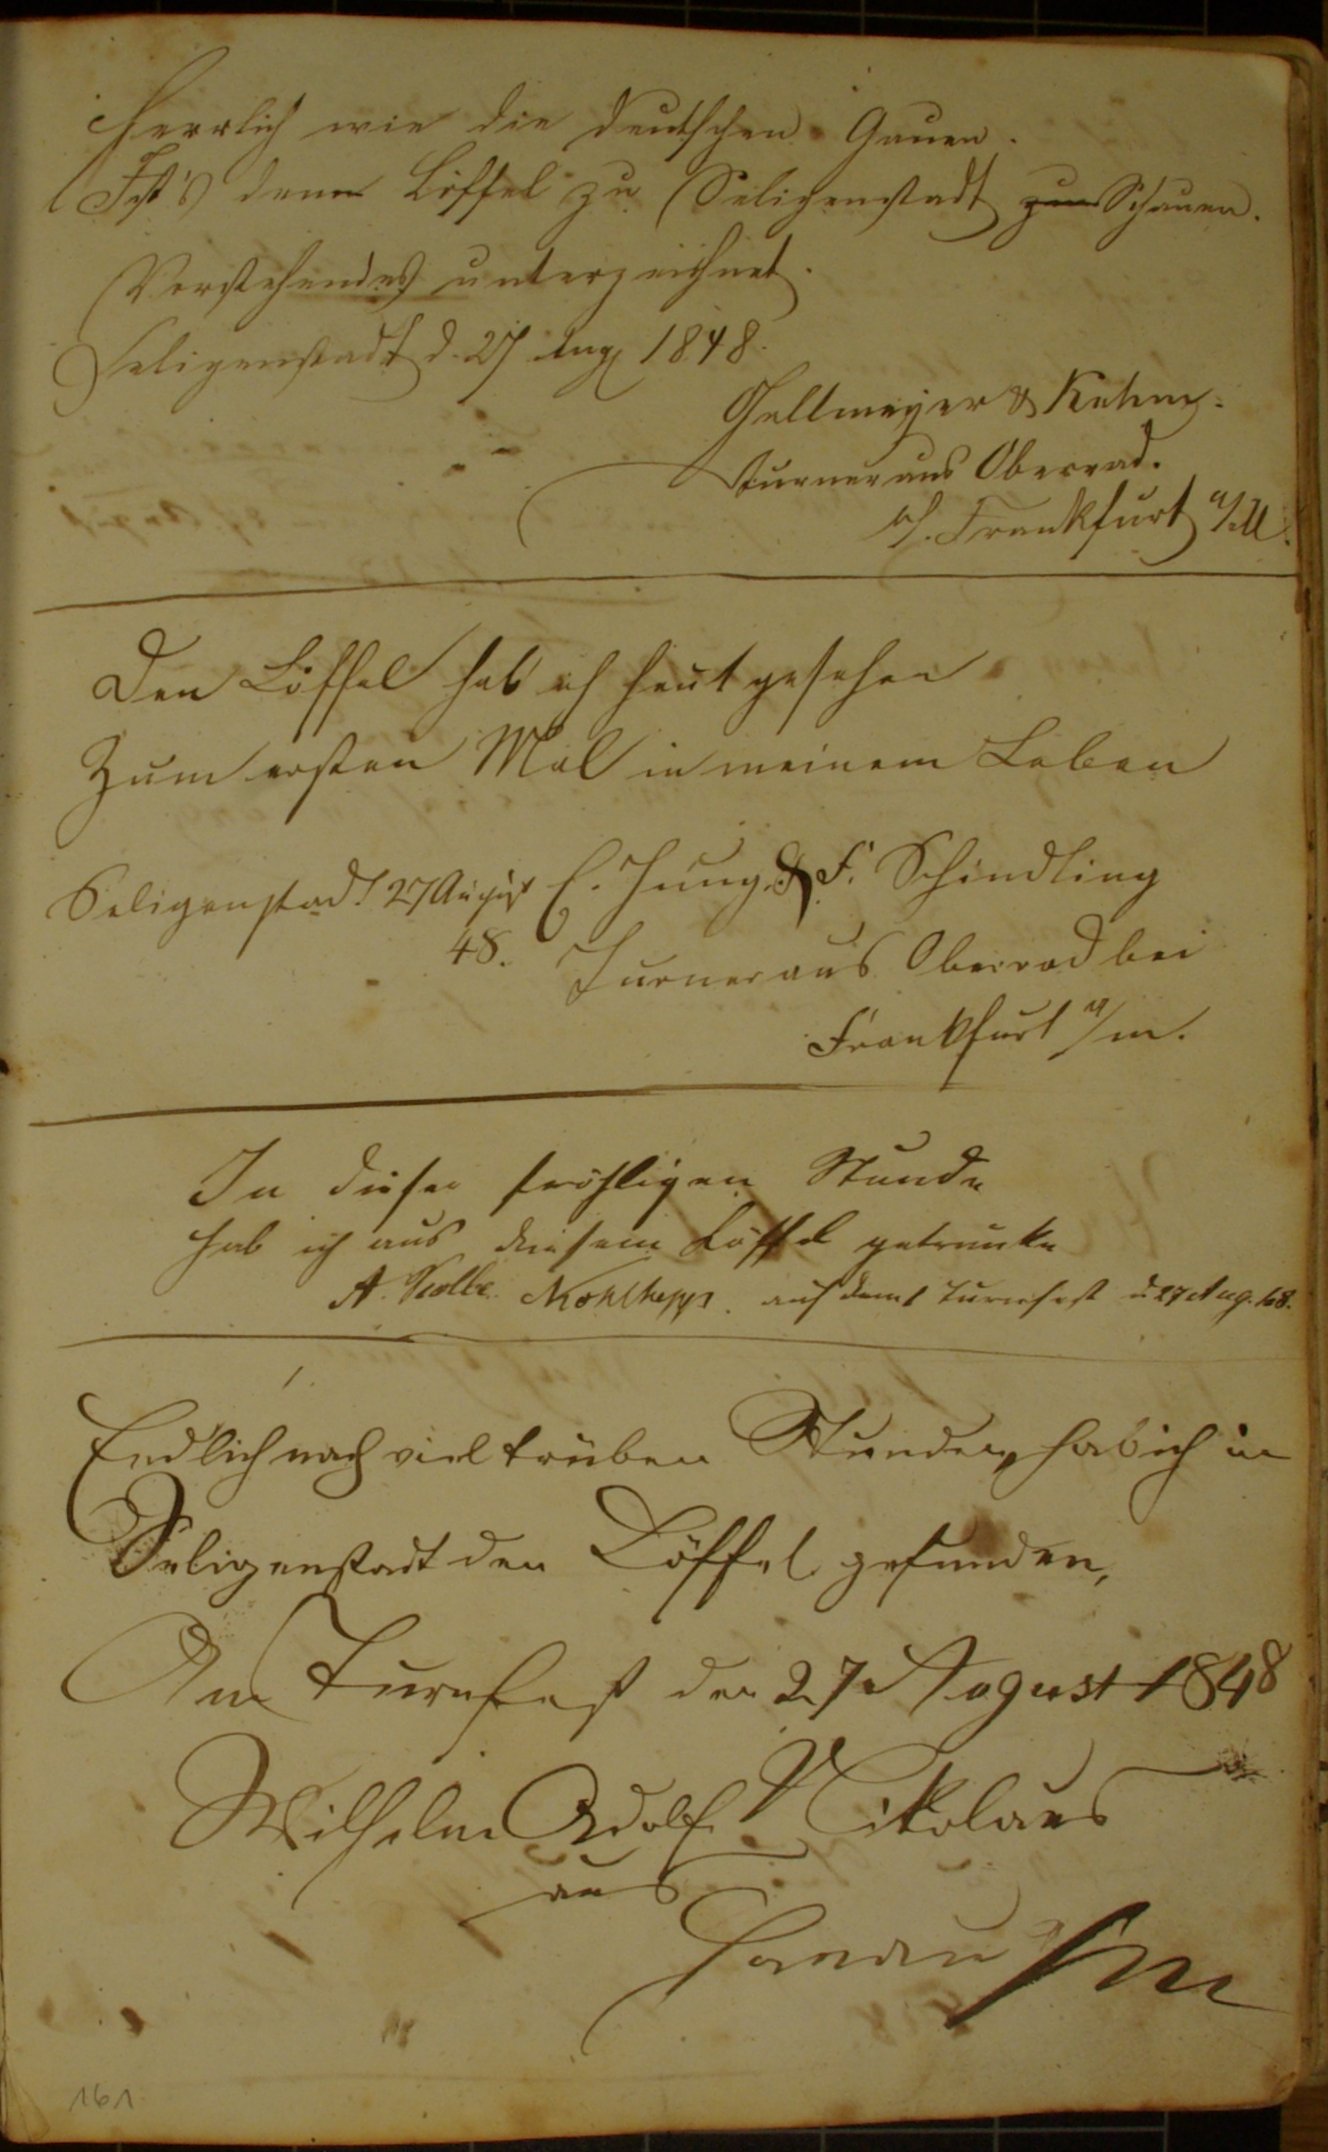 Herrlich wie die deutschen Gauen.
Ist's denn Löffel zu Seligenstadt zum Schauen.
Vorstehendes unterzeichnet.
Seligenstadt d. 27 Aug 1848.
Gellmeyer & Kuhn.
Turner aus Oberrad.
b/. Frankfurt a/M.
Den Löffel hab ich heut gesehen
Zum ersten Mal in meinem Leben
Seligenstadt 27 August E. Jung & F. Schindling
48. Turner aus Oberrad bei
Frankfurt a/m.
In dieser fröhligen Stunde
hab ich aus diesem Löffel getrunke
A. Kolbe. Kohlhepp. auf dem Turnfest d. 27 Aug. 48.
Endlich nach viel trüben Stunden, hab ich in
Seligenstadt den Löffel gefunden,
Am Turnfest den 27 August 1848
Wilhelm Adolf Nikolaus
aus
Hanau a/m
161